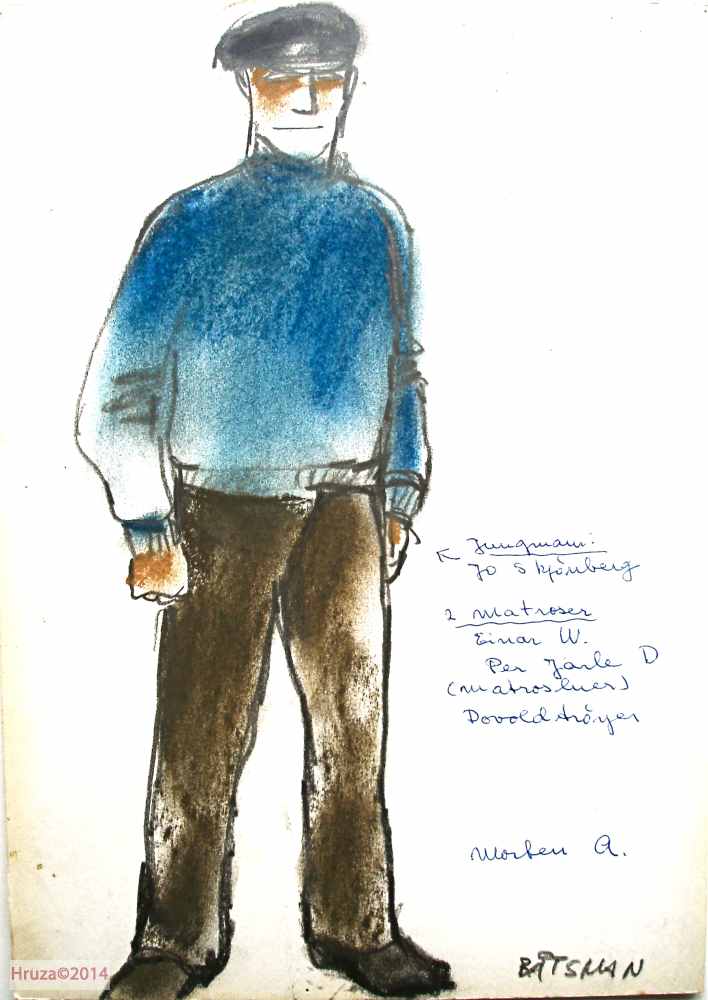 Jungmann:
Jo Skjönberg
2 Matroser
Einar W.
Per Jarle D
(Matrosluer)
Morten A.
BÅTSMAN
Hruza©2014